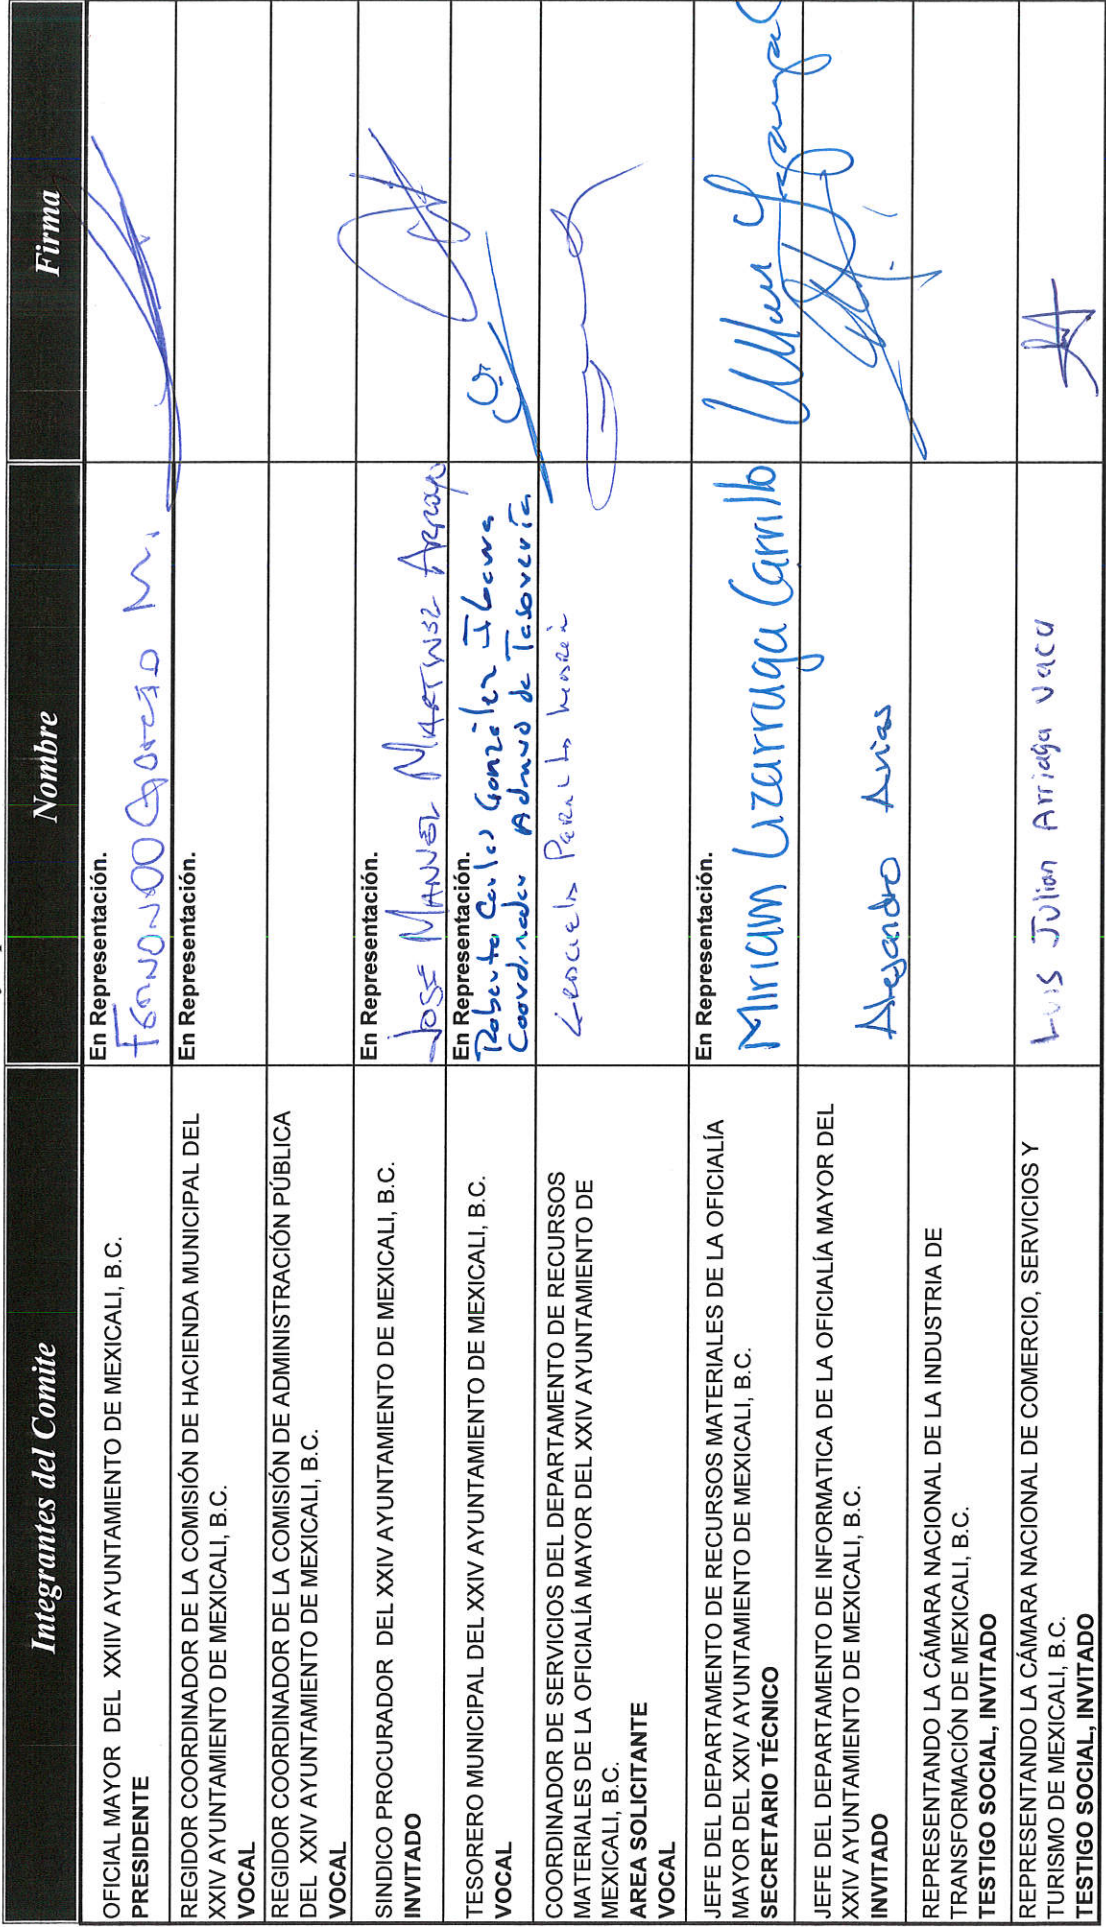 Integrantes del Comite
Nombre
Firma
OFICIAL MAYOR DEL XXIV AYUNTAMIENTO DE MEXICALI, B.C.
PRESIDENTE
En Representación.
M.
REGIDOR COORDINADOR DE LA COMISIÓN DE HACIENDA MUNICIPAL DEL
XXIV AYUNTAMIENTO DE MEXICALI, B.C.
VOCAL
En Representación.
REGIDOR COORDINADOR DE LA COMISIÓN DE ADMINISTRACIÓN PÚBLICA
DEL XXIV AYUNTAMIENTO DE MEXICALI, B.C.
VOCAL
SINDICO PROCURADOR DEL XXIV AYUNTAMIENTO DE MEXICALI, B.C.
INVITADO
En Representación.
JOSE MANUEL MARTINEZ
TESORERO MUNICIPAL DEL XXIV AYUNTAMIENTO DE MEXICALI, B.C.
VOCAL
En Representación.
Roberto Carlos González Ibarra
Coordinador Admvo de Tesorería
COORDINADOR DE SERVICIOS DEL DEPARTAMENTO DE RECURSOS
MATERIALES DE LA OFICIALÍA MAYOR DEL XXIV AYUNTAMIENTO DE
MEXICALI, B.C.
AREA SOLICITANTE
VOCAL
JEFE DEL DEPARTAMENTO DE RECURSOS MATERIALES DE LA OFICIALÍA
MAYOR DEL XXIV AYUNTAMIENTO DE MEXICALI, B.C.
SECRETARIO TÉCNICO
En Representación.
Miriam Lizarruga Carrillo
JEFE DEL DEPARTAMENTO DE INFORMATICA DE LA OFICIALÍA MAYOR DEL
XXIV AYUNTAMIENTO DE MEXICALI, B.C.
INVITADO
Alejandro Arias
REPRESENTANDO LA CÁMARA NACIONAL DE LA INDUSTRIA DE
TRANSFORMACIÓN DE MEXICALI, B.C.
TESTIGO SOCIAL, INVITADO
REPRESENTANDO LA CÁMARA NACIONAL DE COMERCIO, SERVICIOS Y
TURISMO DE MEXICALI, B.C.
TESTIGO SOCIAL, INVITADO
Luis Julian Arriaga Vaca